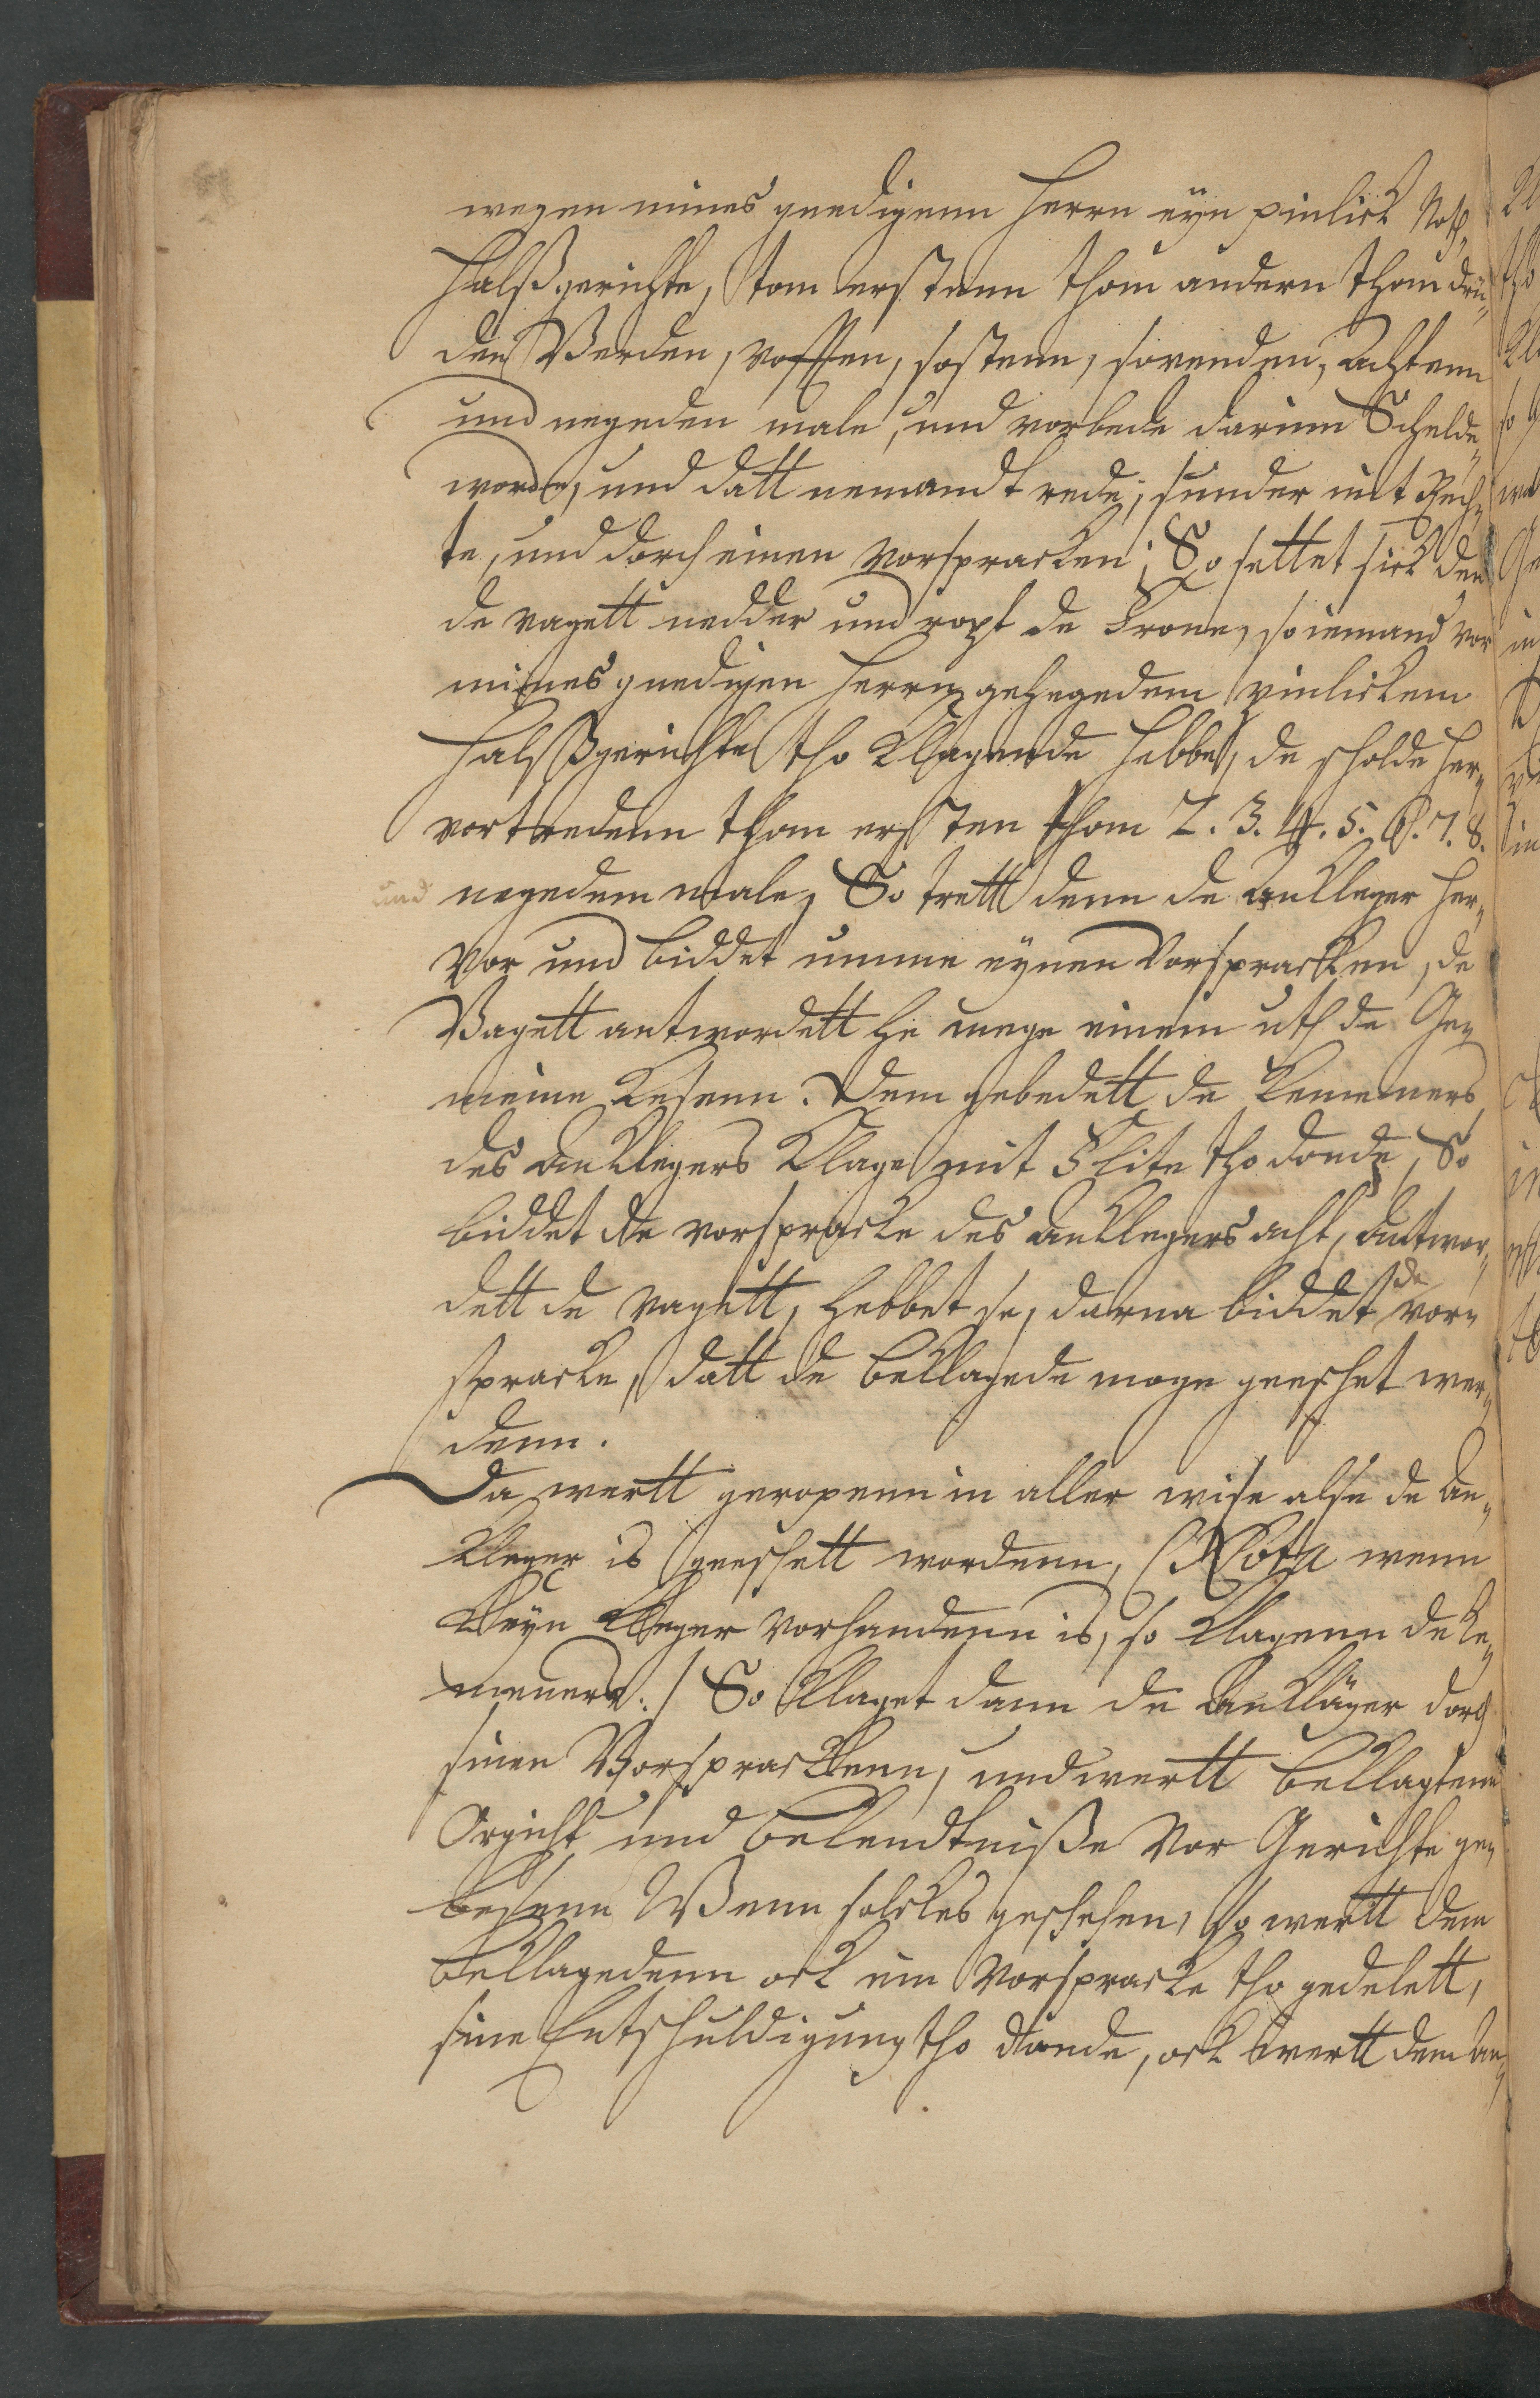 wegen mines gnedigenn Herrn eyn pinlick Noth,
Halßgerichte, tom erstenn thom andern thom drü-
den Verden, vofften, sostenn, sovenden, achtenn
und negeden male, und vorbede darinn Schelde
worde, und datt nemandt rede, sunder mit Rech-
te, und dorch einen vorspracken; So settet sick den
de vagett nedder und ropt de Frone, so iemand vor
mines gnedigen Herrn gehegedem pinlickem
Halßgerichte tho klagende hebbe, de scholde her-
vortredenn thom ersten thom 2. 3. 4. 5. 6. 7. 8.
und negedem male, So trett denn de ankleger her-
vor und biddet umme eynen Vorspracken, de
Vagett antwordett he mege einem uth de Ge-
meine kesenn. Dem gebedett de Kemeners
des anklegers Klage mit Flite tho donde, So
biddet de vorspracke des anklegers acht, antwor-
dett de vagett, hebbet se, darna biddet de vor-
spracke, datt de beklagede moge geeschet wer-
denn.
Da wertt geropenn in aller wise alse de an-
kleger is geeschett wordenn, (Nota wenn
kleyn kleger vorhandenn is, so klagenn de ke-
meners.) So klaget dann de Ankläger dorch
sinen Vorsprackenn, und wertt beklagtenn
Orgicht und bekendtniße vor Gerichte ge-
lesenn Wenn solckes geschehen, so wertt dem
beklagedenn ock ein vorspracke tho gedelett,
sine Entschuldigung tho donde, ock wertt dem an-